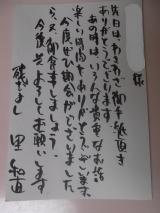 様
先日は、わざわざ御手紙頂き
ありがとうございます
あの時は、いろんな貴重なお話
楽しい時間をありがとうございました
今度ぜひ都合がございました
ら、又御食事しましょう。
今後共よろしくお願いします